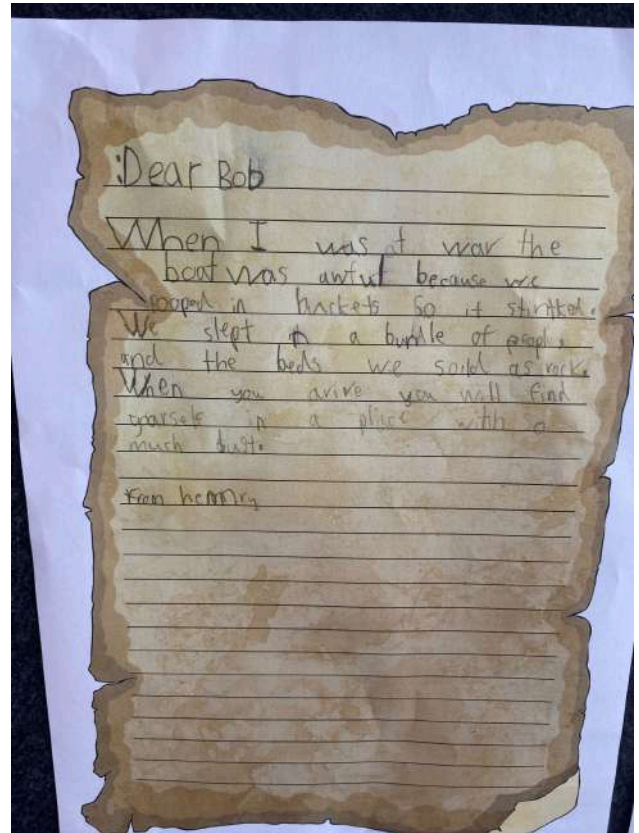 :Dear Bob
When I was at war the
boat was awful because we
pooped in buckets so it stintked.
We slept in a bundle of people
and the beds we soild as rock.
When you arive you will find
yourself in a place with so
much dust.
from henmry